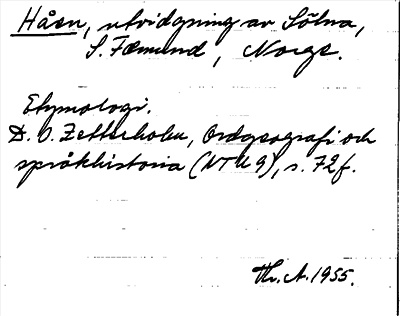 Håen, utvidgning av Sölna,
S. Fæmund, Norge.
Etymologi.
D. O. Zetterholm, Ordgeografi och
språkhistoria (NTU 9), s. 72f.
Th. A. 1955.